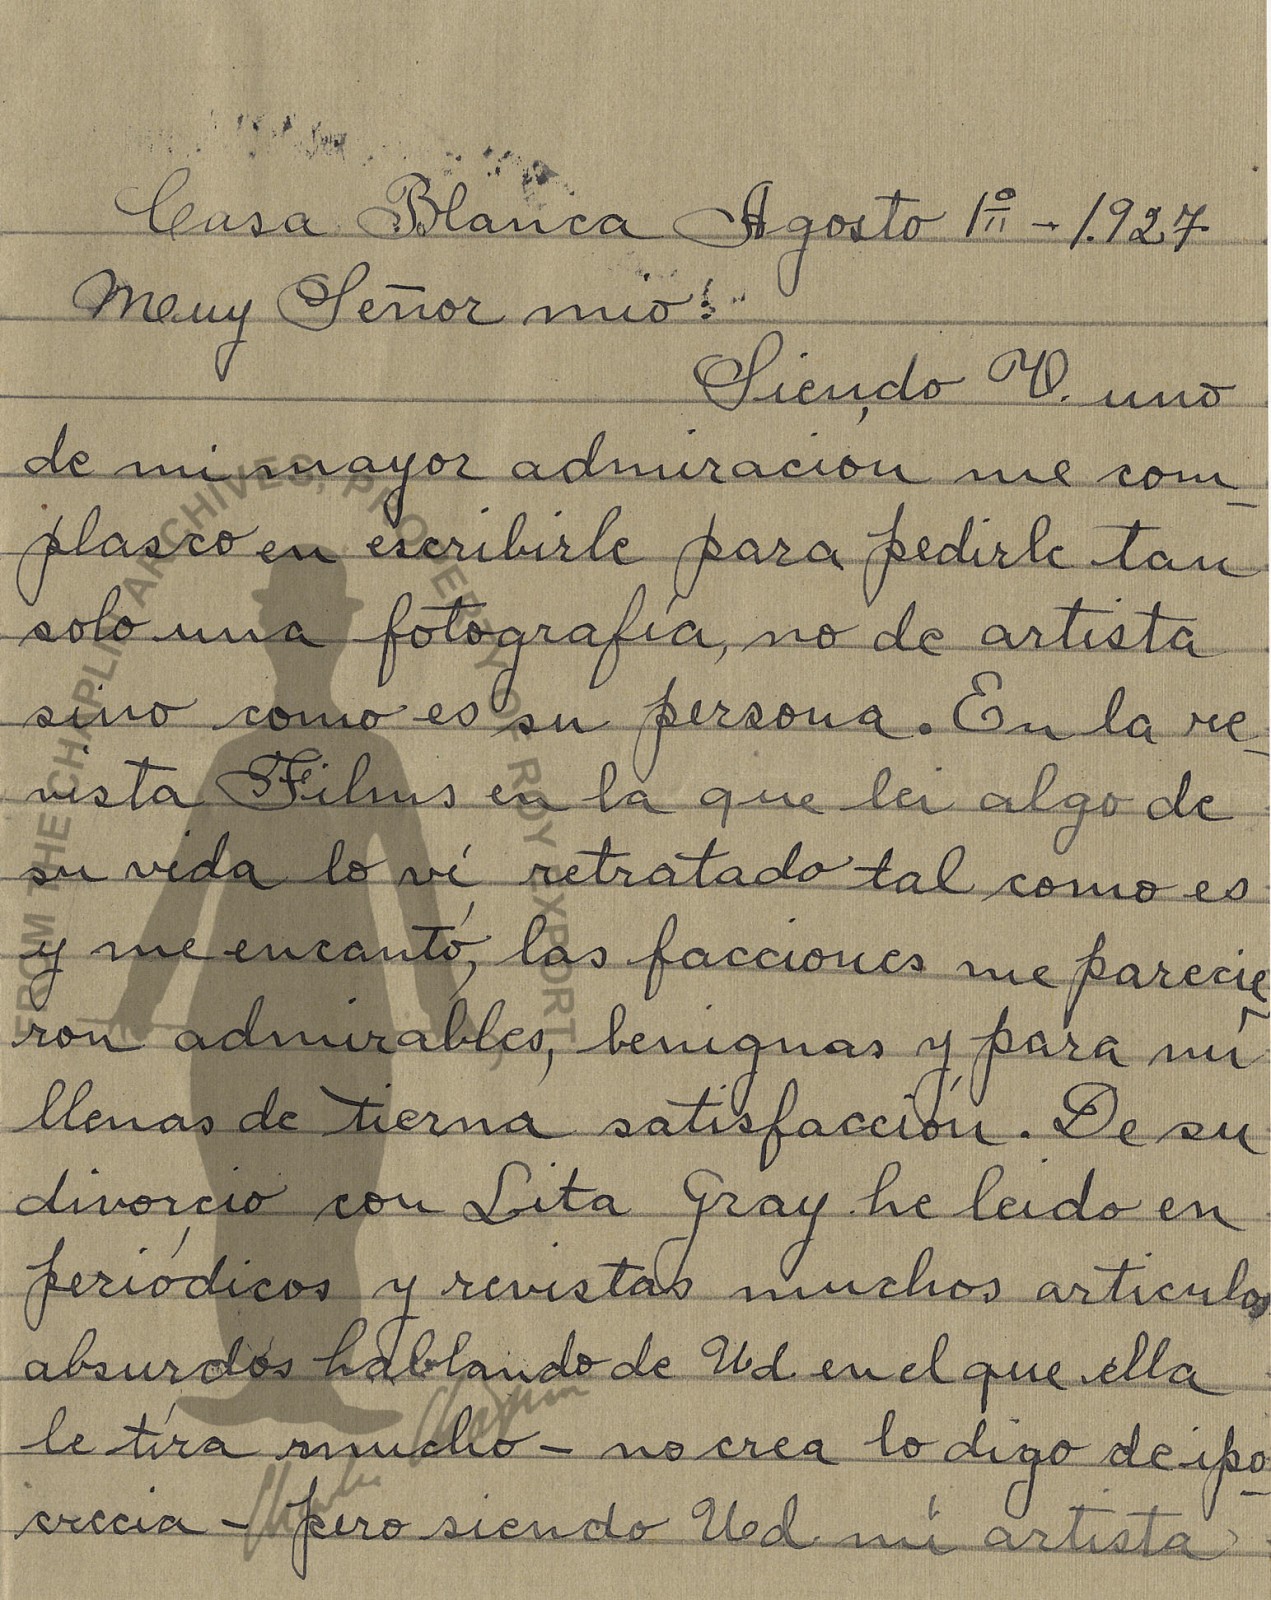 Casa Blanca Agosto 1º - 1.927
Muy Señor mio:
Siendo V. uno
de mi mayor admiración me com-
plasco en escribirle para pedirle tan
solo una fotografía, no de artista
sino como es su persona. En la re-
vista Films en la que lei algo de
su vida lo ví retratado tal como es
y me encantó, las facciones me parecie-
ron admirables, benignas y para mí
llenas de tierna satisfacción. De su
divorcio con Lita Gray he leido en
periódicos y revistas muchos articulos
absurdos hablando de Ud en el que ella
le tira mucho - no crea lo digo de ipo-
crecia - pero siendo Ud mi artista
FROM THE CHAPLIN ARCHIVES, PROPERTY OF ROY EXPORT
Charlie Chaplin